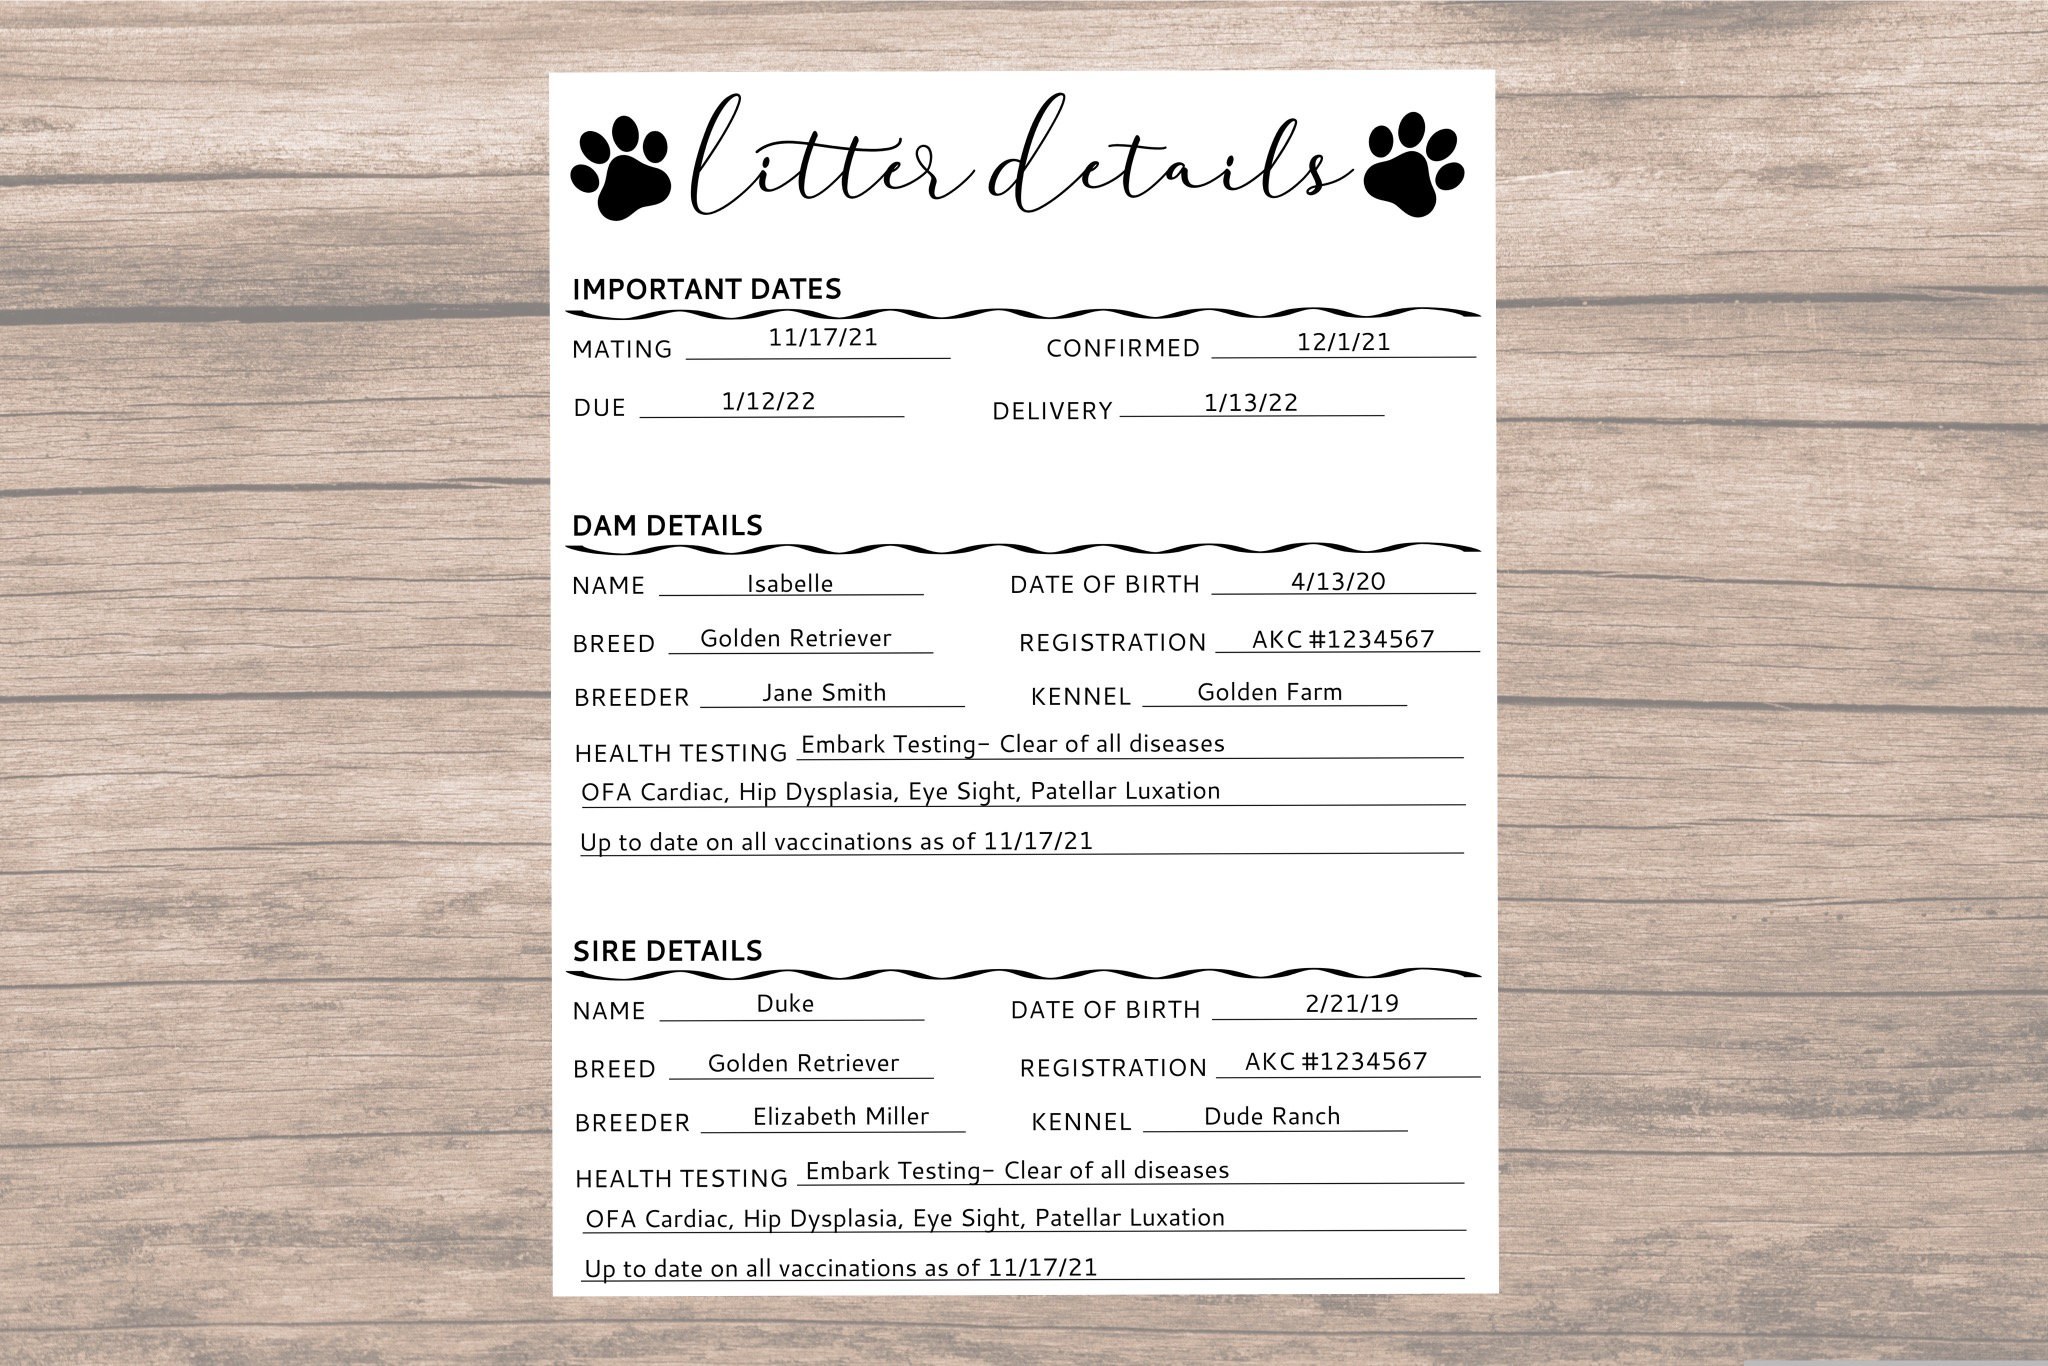 litter details
IMPORTANT DATES
MATING 11/17/21 CONFIRMED 12/1/21
DUE 1/12/22 DELIVERY 1/13/22
DAM DETAILS
NAME Isabelle DATE OF BIRTH 4/13/20
BREED Golden Retriever REGISTRATION AKC #1234567
BREEDER Jane Smith KENNEL Golden Farm
HEALTH TESTING Embark Testing- Clear of all diseases
OFA Cardiac, Hip Dysplasia, Eye Sight, Patellar Luxation
Up to date on all vaccinations as of 11/17/21
SIRE DETAILS
NAME Duke DATE OF BIRTH 2/21/19
BREED Golden Retriever REGISTRATION AKC #1234567
BREEDER Elizabeth Miller KENNEL Dude Ranch
HEALTH TESTING Embark Testing- Clear of all diseases
OFA Cardiac, Hip Dysplasia, Eye Sight, Patellar Luxation
Up to date on all vaccinations as of 11/17/21